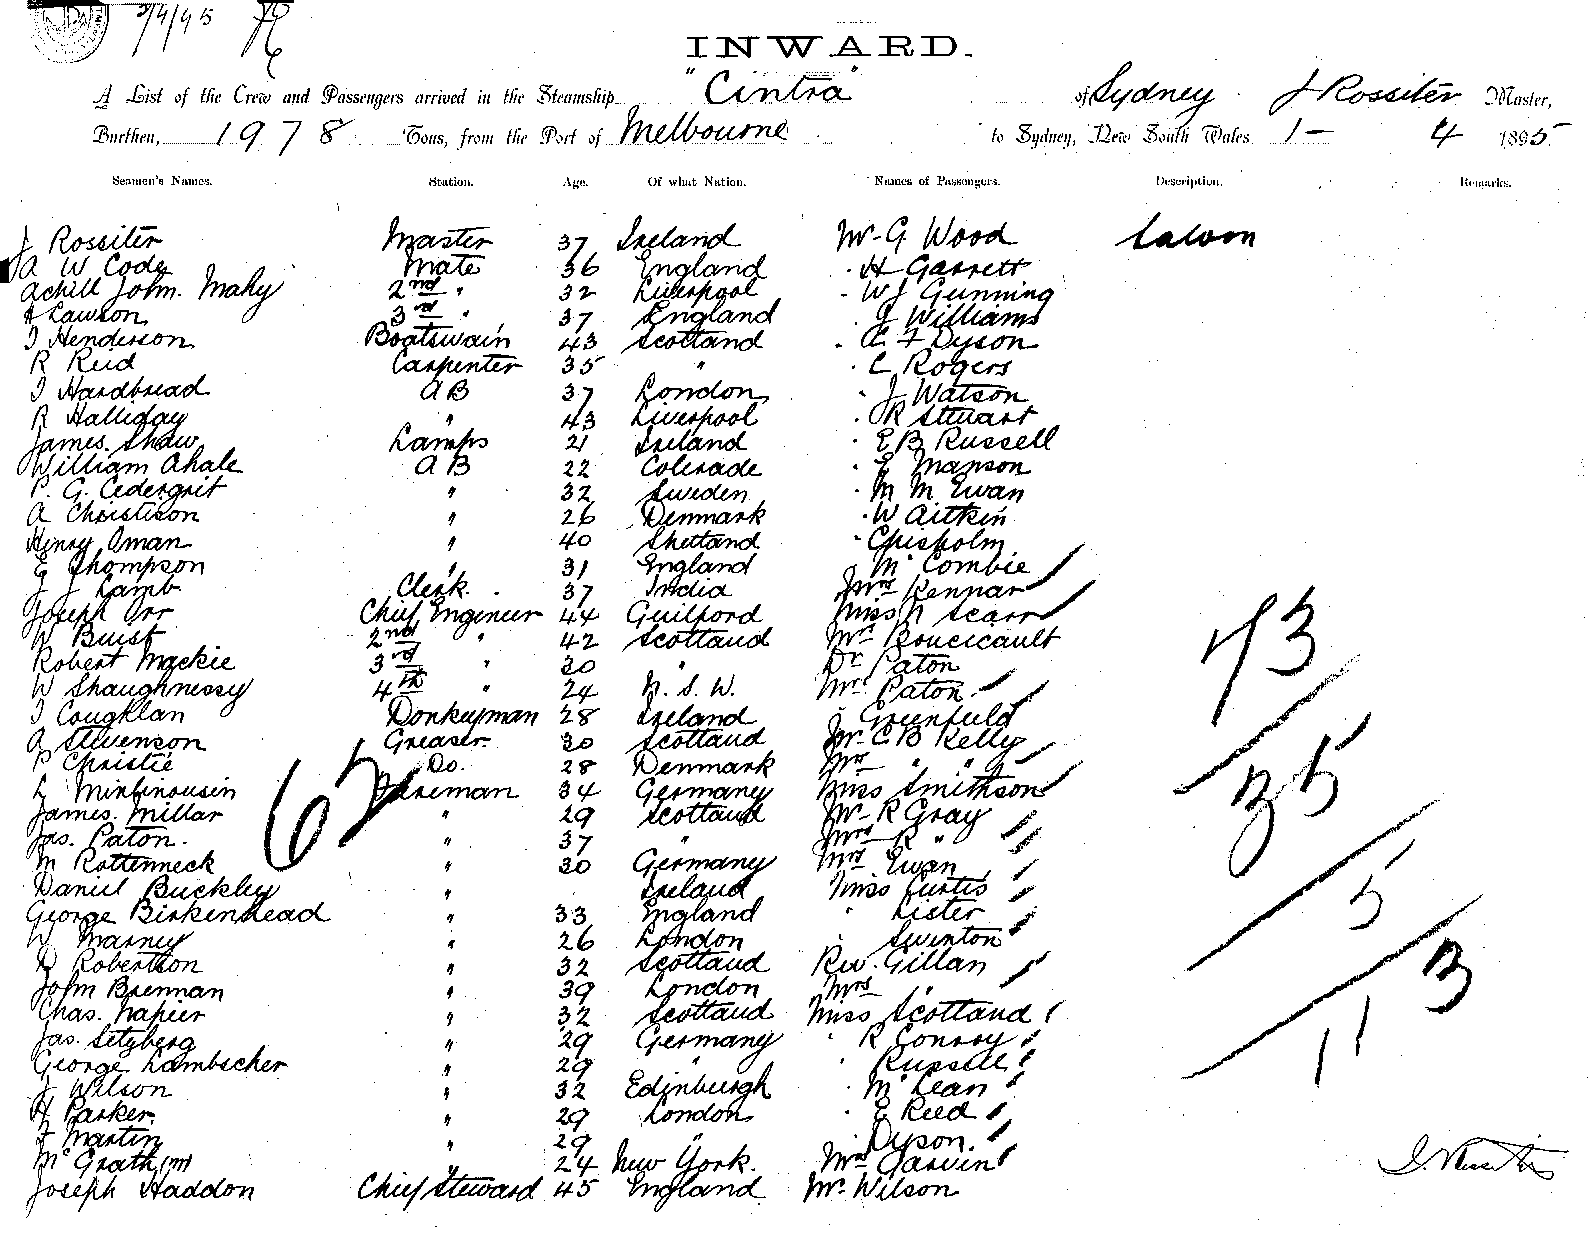 3/4/95
INWARD.
A List of the Crew and Passengers arrived in the Steamship "Cintra" of Sydney J Rossiter Master,
Burthen, 1978 Tons, from the Port of Melbourne to Sydney, New South Wales 1 - 4 1895
Seamen's Names. Station. Age. Of what Nation. Names of Passengers. Description. Remarks.
J Rossiter Master 37 Ireland Mr. G Wood Saloon
A W Code Mate 36 England " H Garrett
Achill John. Mahy 2nd " 32 Liverpool " W J Gunning
A Lawson 3rd " 37 England " J Williams
J Henderson Boatswain 43 Scotland " A F Dyson
R Reid Carpenter 35 " " C Rogers
J Hardbread A B 37 London " J Watson
R Halliday " 43 Liverpool " R Stewart
James. Shaw Lamps 21 Ireland " E B Russell
William Ahale A B 22 Colerade " E Manson
P. G. Cedergrit " 32 Sweden " M M Ewan
A Christison " 26 Denmark " W Aitkin
Henry Oman " 40 Shetland " Chisholm
E Thompson " 31 England " McCombie
J J Lamb Clerk. 37 India Mrs Kennar
Joseph Orr Chief Engineer 44 Guilford Miss N Scarr
W Buist 2nd " 42 Scotland Mr Boucicault
Robert Mackie 3rd " 30 " Dr Paton
W Shaughnessy 4th " 24 N. S. W. Mrs Paton
J Coughlan Donkeyman 28 Ireland " Greenfield
A Stevenson Greaser. 30 Scotland Mr. C B Kelly
P Christie Do. 28 Denmark Mrs " "
L Mintinousin Fireman 34 Germany Miss Smithson
James. Millar " 29 Scotland Mr R Gray
Jas. Paton. " 37 " Mrs R "
M Rottenneck " 30 Germany Mrs Ewan
Daniel Buckley " Ireland Miss Curtis
George Birkenhead " 33 England " Lister
W Marney " 26 London " Swinton
D Robertson " 32 Scotland Rev. Gillan
John Brennan " 39 London Mrs "
Chas. Napier " 32 Scotland Miss Scotland
Jas. Setzberg " 29 Germany " R Conroy
George Lambscher " 29 " " Russell
J Wilson " 32 Edinburgh " McLean
H Parker. " 29 London " E Reed
F Martin " 29 " " Dyson.
McGrath (M) " 24 New York. Mrs Garvin
Joseph Haddon Chief Steward 45 England Mr. Wilson
67
73
35
5
3
11
J Rossiter